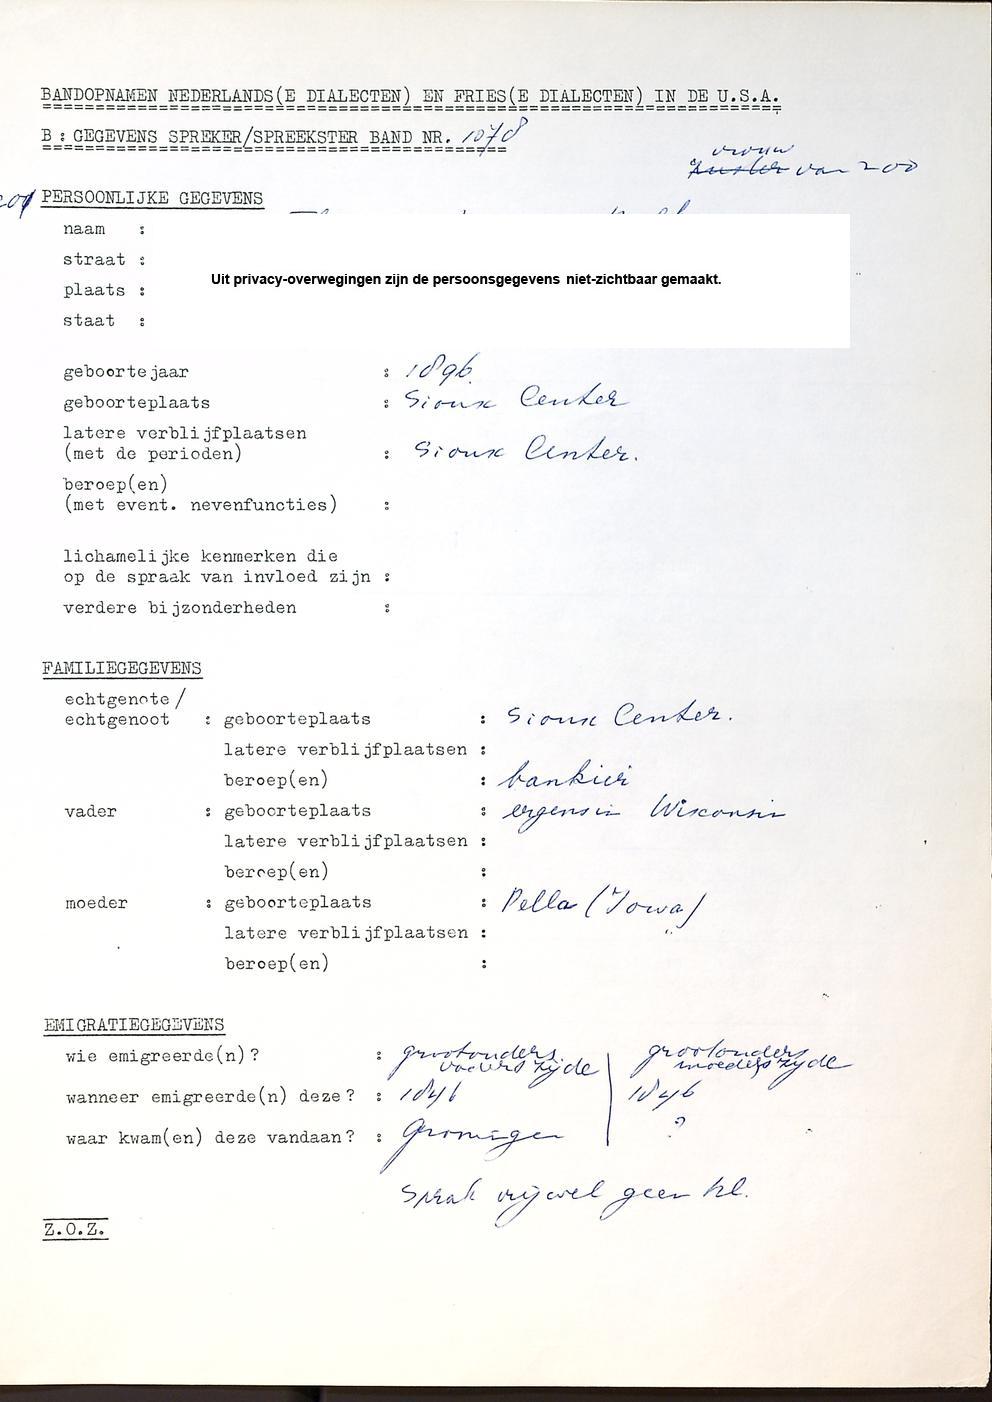 BANDOPNAMEN NEDERLANDS(E DIALECTEN) EN FRIES(E DIALECTEN) IN DE U.S.A.
B : GEGEVENS SPREKER/SPREEKSTER BAND NR. 1078
vrouw
zuster van 200
201 PERSOONLIJKE GEGEVENS
naam :
straat :
Uit privacy-overwegingen zijn de persoonsgegevens niet-zichtbaar gemaakt.
plaats :
staat :
geboortejaar : 1896.
geboorteplaats : Sioux Center
latere verblijfplaatsen
(met de perioden) : Sioux Center.
beroep(en)
(met event. nevenfuncties) :
lichamelijke kenmerken die
op de spraak van invloed zijn :
verdere bijzonderheden :
FAMILIEGEGEVENS
echtgenote/
echtgenoot : geboorteplaats : Sioux Center.
latere verblijfplaatsen :
beroep(en) : bankier
vader : geboorteplaats : ergens in Wisconsin
latere verblijfplaatsen :
beroep(en) :
moeder : geboorteplaats : Pella (Iowa)
latere verblijfplaatsen :
beroep(en) :
EMIGRATIEGEGEVENS
wie emigreerde(n)? : grootouders vaders zijde grootouders moeders zijde
wanneer emigreerde(n) deze? : 1846 1846
waar kwam(en) deze vandaan? : Groningen ?
Sprak vrijwel geen Nl.
Z.O.Z.